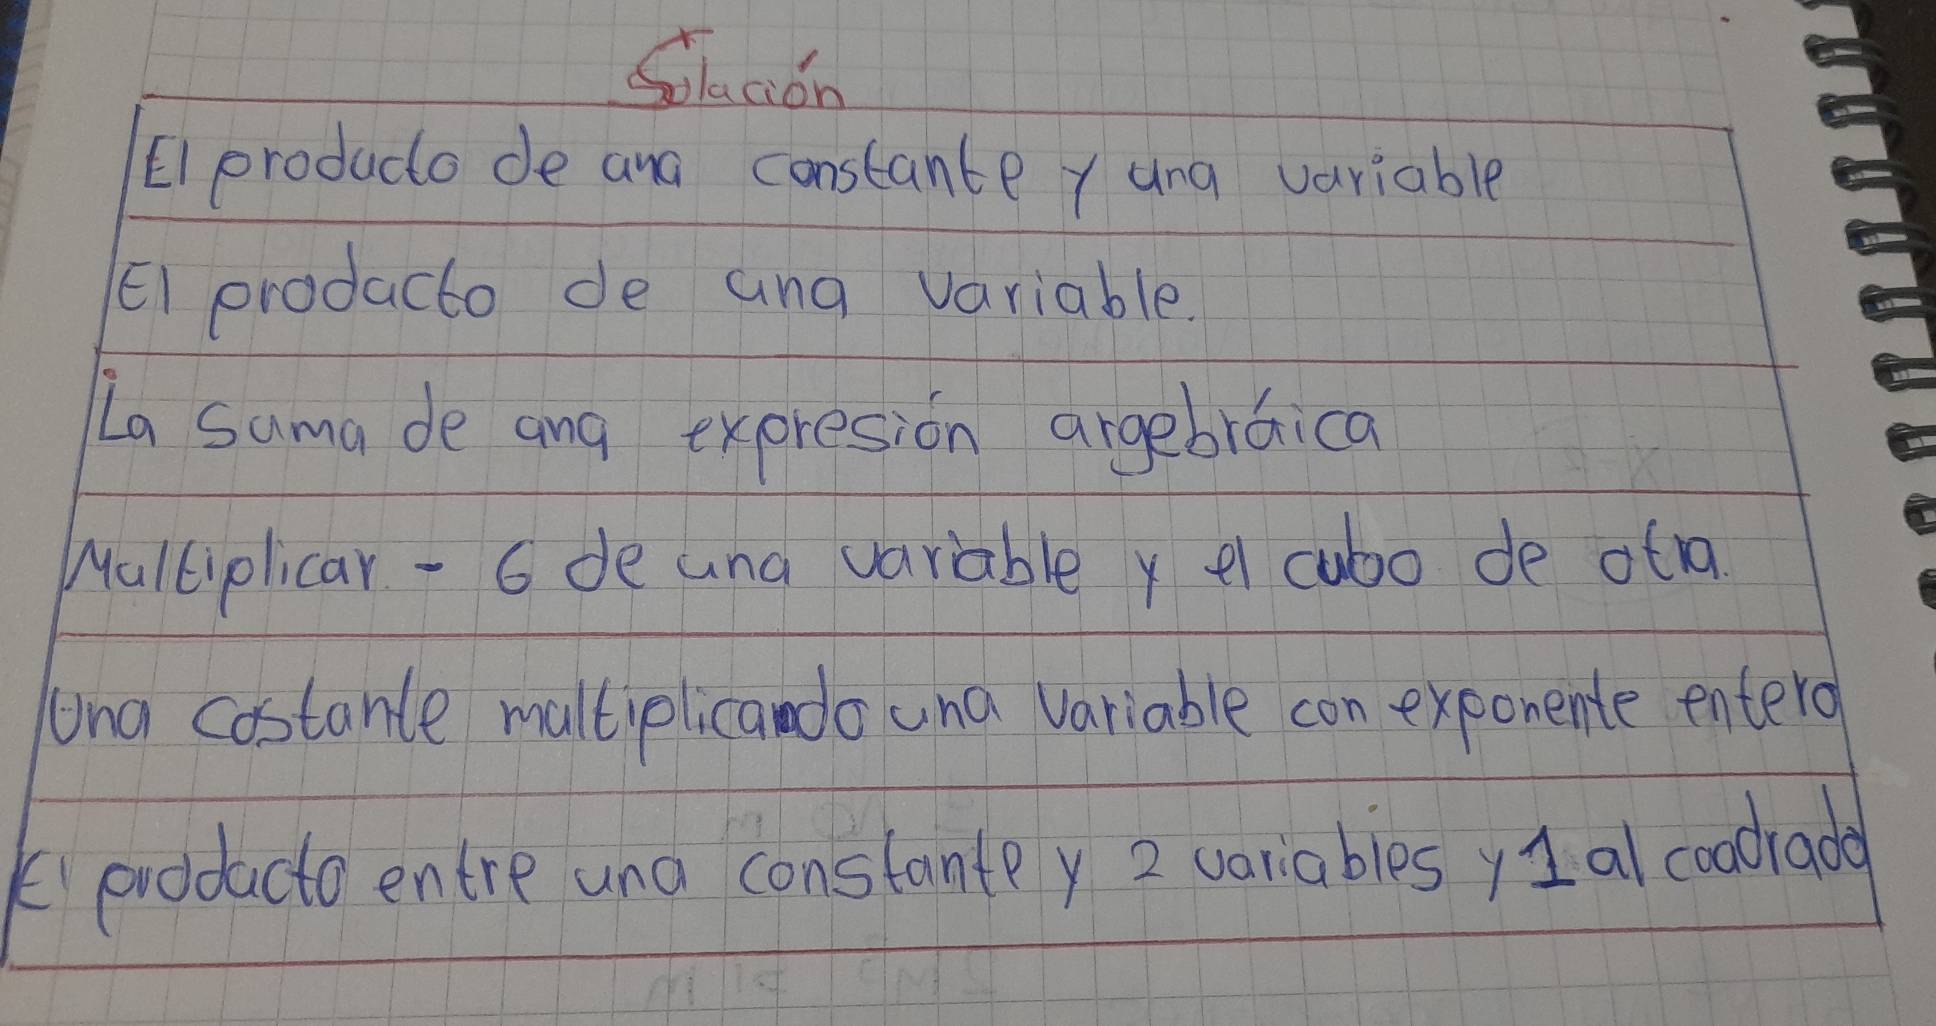 Solución
El producto de una constante y una variable
El producto de una variable.
La suma de una expresión argebráica
Multiplicar - 6 de una variable y el cubo de otra.
Una costante multiplicando una variable con exponente entero
El producto entre una constante y 2 variables y 1 al coadrado